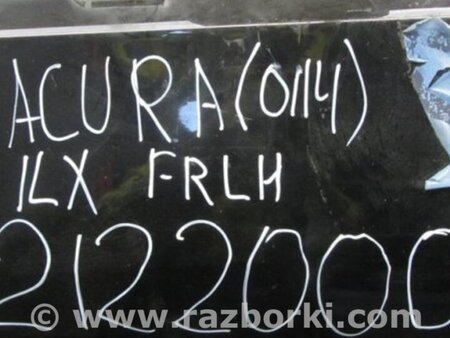 ACURA (0114)
ILX FRLH
2122000
© - www.razborki.com -